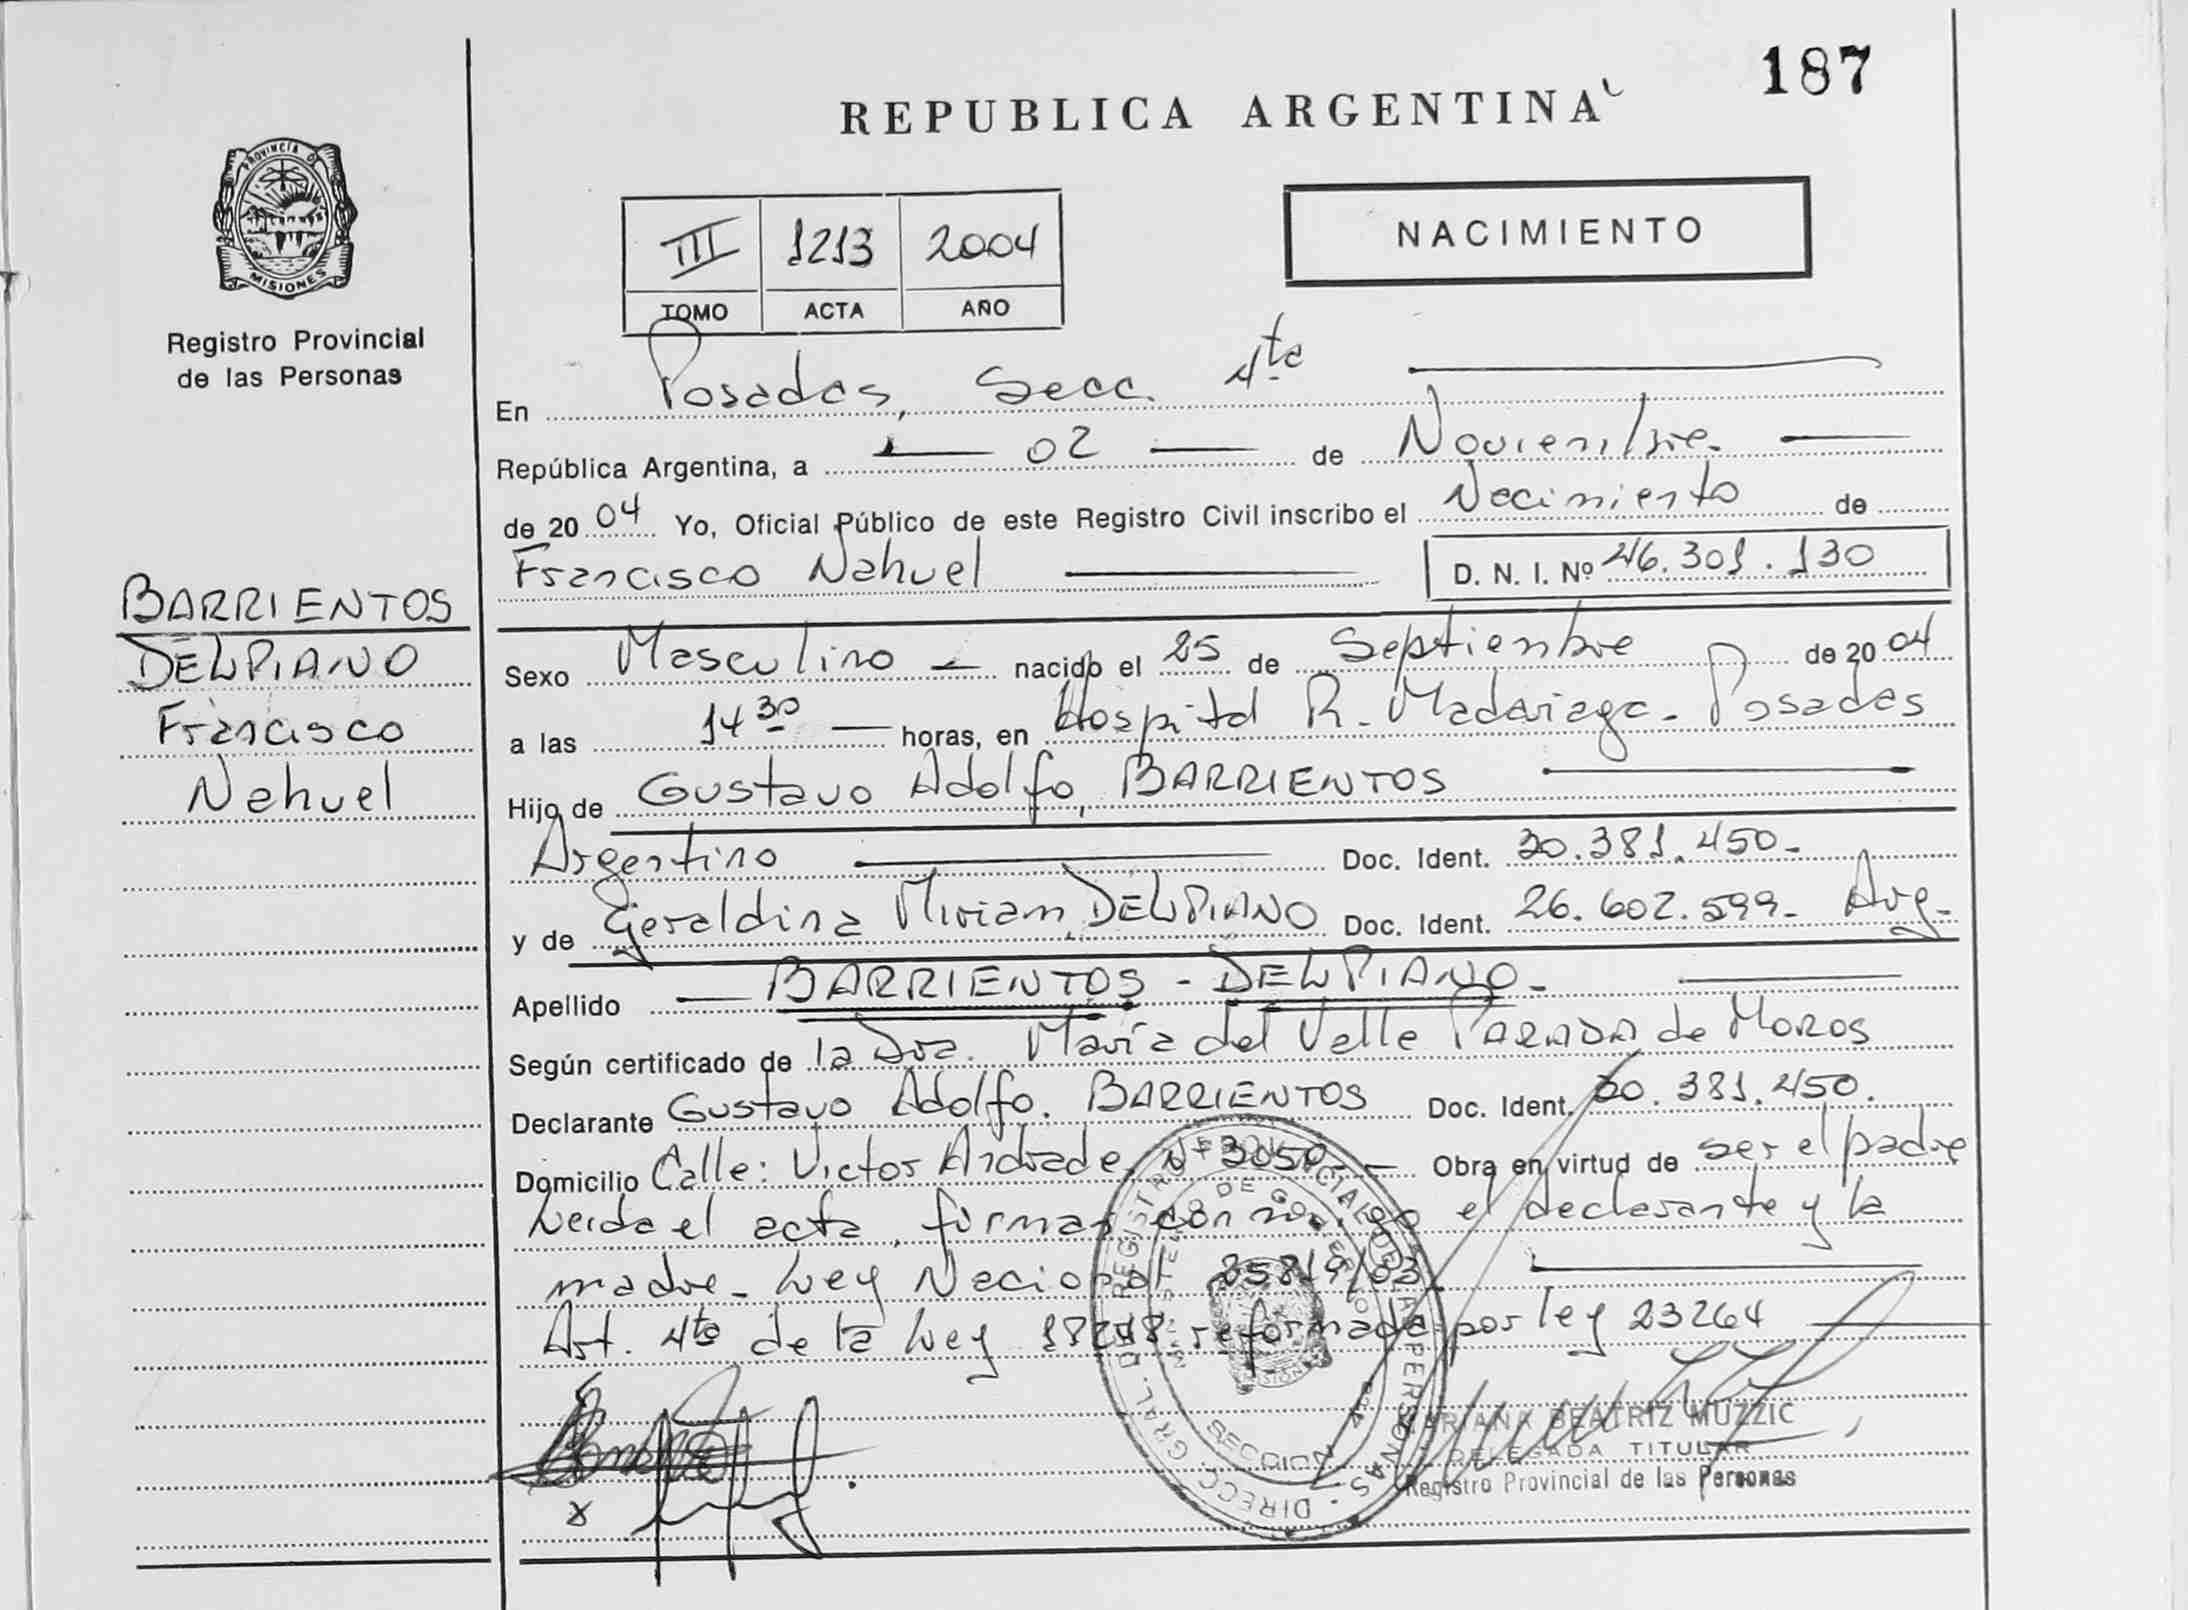 187
REPUBLICA ARGENTINA
PROVINCIA DE
MISIONES
Registro Provincial
de las Personas
III 1213 2004
TOMO ACTA AÑO
NACIMIENTO
En Posadas, Secc. 4ta
República Argentina, a 02 de Noviembre.
de 2004 Yo, Oficial Público de este Registro Civil inscribo el Nacimiento de
Francisco Nahuel D. N. I. Nº 46.301.130
BARRIENTOS
DELPIANO
Francisco
Nahuel
Sexo Masculino nacido el 25 de Septiembre de 2004
a las 14 30 horas, en Hospital R. Madariaga - Posadas
Hijo de Gustavo Adolfo, BARRIENTOS
Argentino Doc. Ident. 30.381.450-
y de Geraldina Miriam, DELPIANO Doc. Ident. 26.602.599- Arg-
Apellido BARRIENTOS - DELPIANO-
Según certificado de la Dra. María del Valle PARADA de MOROS
Declarante Gustavo Adolfo. BARRIENTOS Doc. Ident. 30.381.450.
Domicilio Calle: Victor Andrade. Nº 3050 - Obra en virtud de ser el padre
Leida el acta, firman conmigo el declarante y la
madre - Ley Nacional 25819/03
Art. 4to de la Ley 18248 reformada por ley 23264
DIRECC. GRAL. DEL REGISTRO PROVINCIAL DE LAS PERSONAS
SECCION 4ta
MARIANA BEATRIZ MUZZIC
DELEGADA TITULAR
Registro Provincial de las Personas